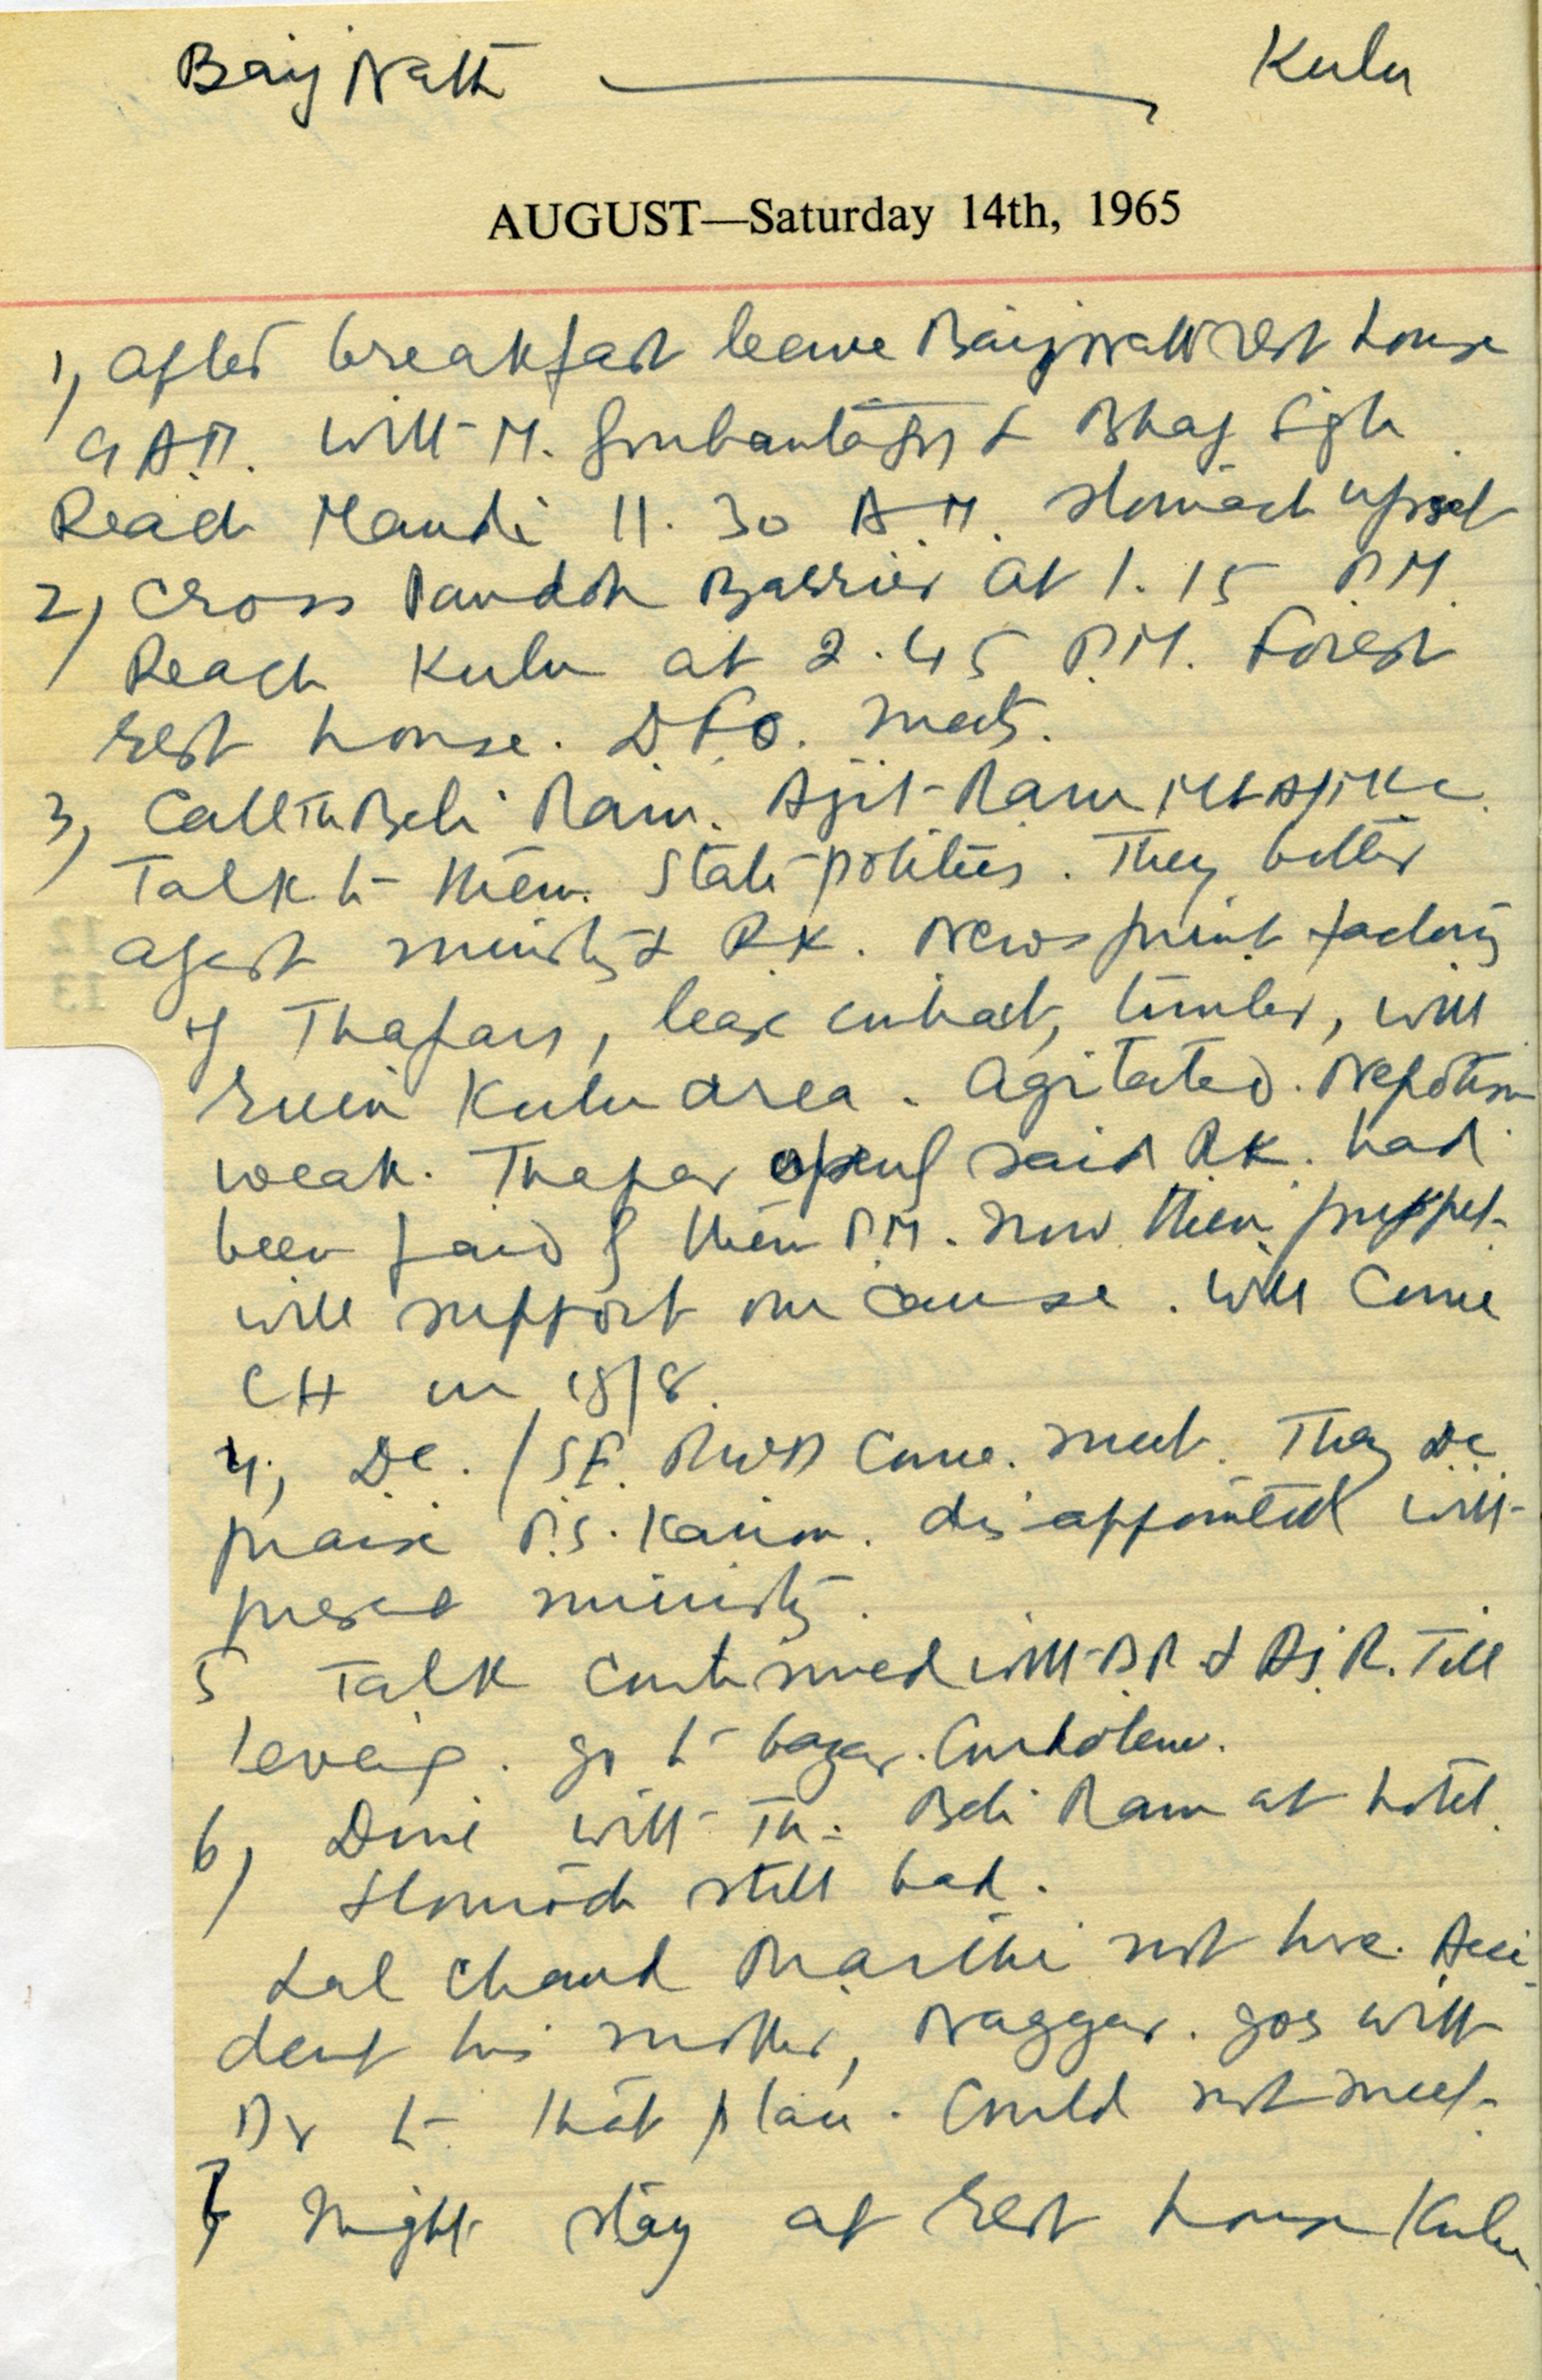 Baij Nath Kulu
AUGUST—Saturday 14th, 1965
1, After breakfast leave Baijnath rest house
9 A.M. with M. Gurbanta Sgn & Bhag Sigh.
Reach Mandi 11.30 A.M. stomach upset
2, Cross Pandoh Barrier at 1.15 P.M.
Reach Kulu at 2.45 P.M. Forest
rest house. D.F.O. meets.
3, Call Th Beli Ram. Ajit Ram
Talk to them. State politics. They bitter
agest ministy & R.K. News print factory
of Thapars, lease contract, timber, will
ruin Kulu area. Agitated. Nepotism
weak. Thaper said R.K. had
been paid them P.M. now their puppet.
will support our cause. Will come
CH on 18/8.
4, DC. / S.E. PWD come. meet. They DC
praise P.S. Kairon. disappointed with
present ministy.
5 Talk continued with B.R. & Aj. R. Till
eveing. go to bazar.
6, Dine with Th. Beli Ram at hotel.
Stomach still bad.
Lal Chand Prarthi not here. Acci-
dent his mother, Naggar. goes with
Dr to that place. Could not meet.
7, Night stay at rest house Kulu.
12
13